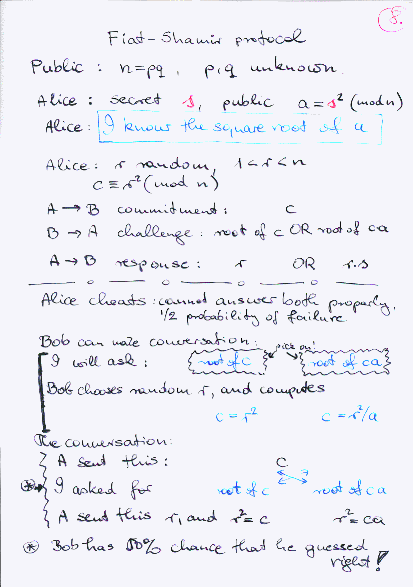 5.
Fiat-Shamir protocol
Public : n=pq , p,q unknown.
Alice : secret s, public a=s² (mod n)
Alice : I know the square root of a
Alice : r random, 1<r<n
c≡r² (mod n)
A → B commitment : c
B → A challenge : root of c OR root of ca
A → B response : r OR r.s
Alice cheats : cannot answer both properly,
1/2 probability of failure.
Bob can make conversation : pick one!
I will ask : root of c root of ca
Bob chooses random r, and computes
c = r² c = r²/a
The conversation:
A sent this : c
⊛ I asked for root of c root of ca
A sent this r, and r²= c r²= ca
⊛ Bob has 50% chance that he guessed
right!